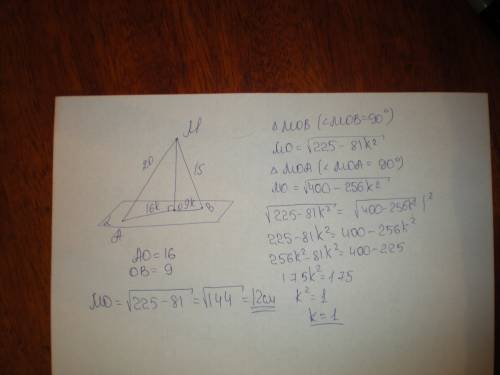 M
20
15
16k
9k
B
A
α
AO = 16
OB = 9
MO = √225 - 81 = √144 = 12см
△ MOB (∠MOB = 90°)
MO = √225 - 81k²
△ MOA (∠MOA = 90°)
MO = √400 - 256k²
√225 - 81k² = √400 - 256k² |²
225 - 81k² = 400 - 256k²
256k² - 81k² = 400 - 225
175k² = 175
k² = 1
k = 1